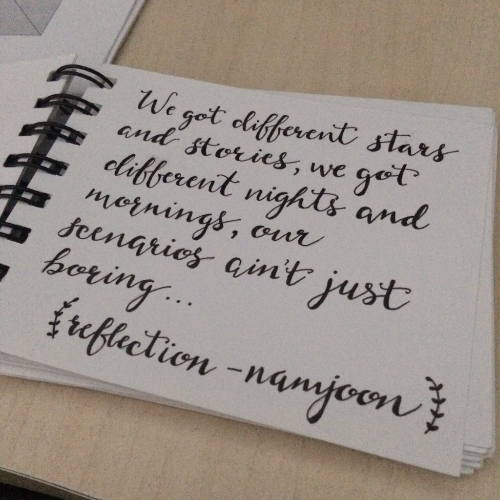 We got different stars
and stories, we got
different nights and
mornings, our
scenarios ain't just
boring...
reflection - namjoon